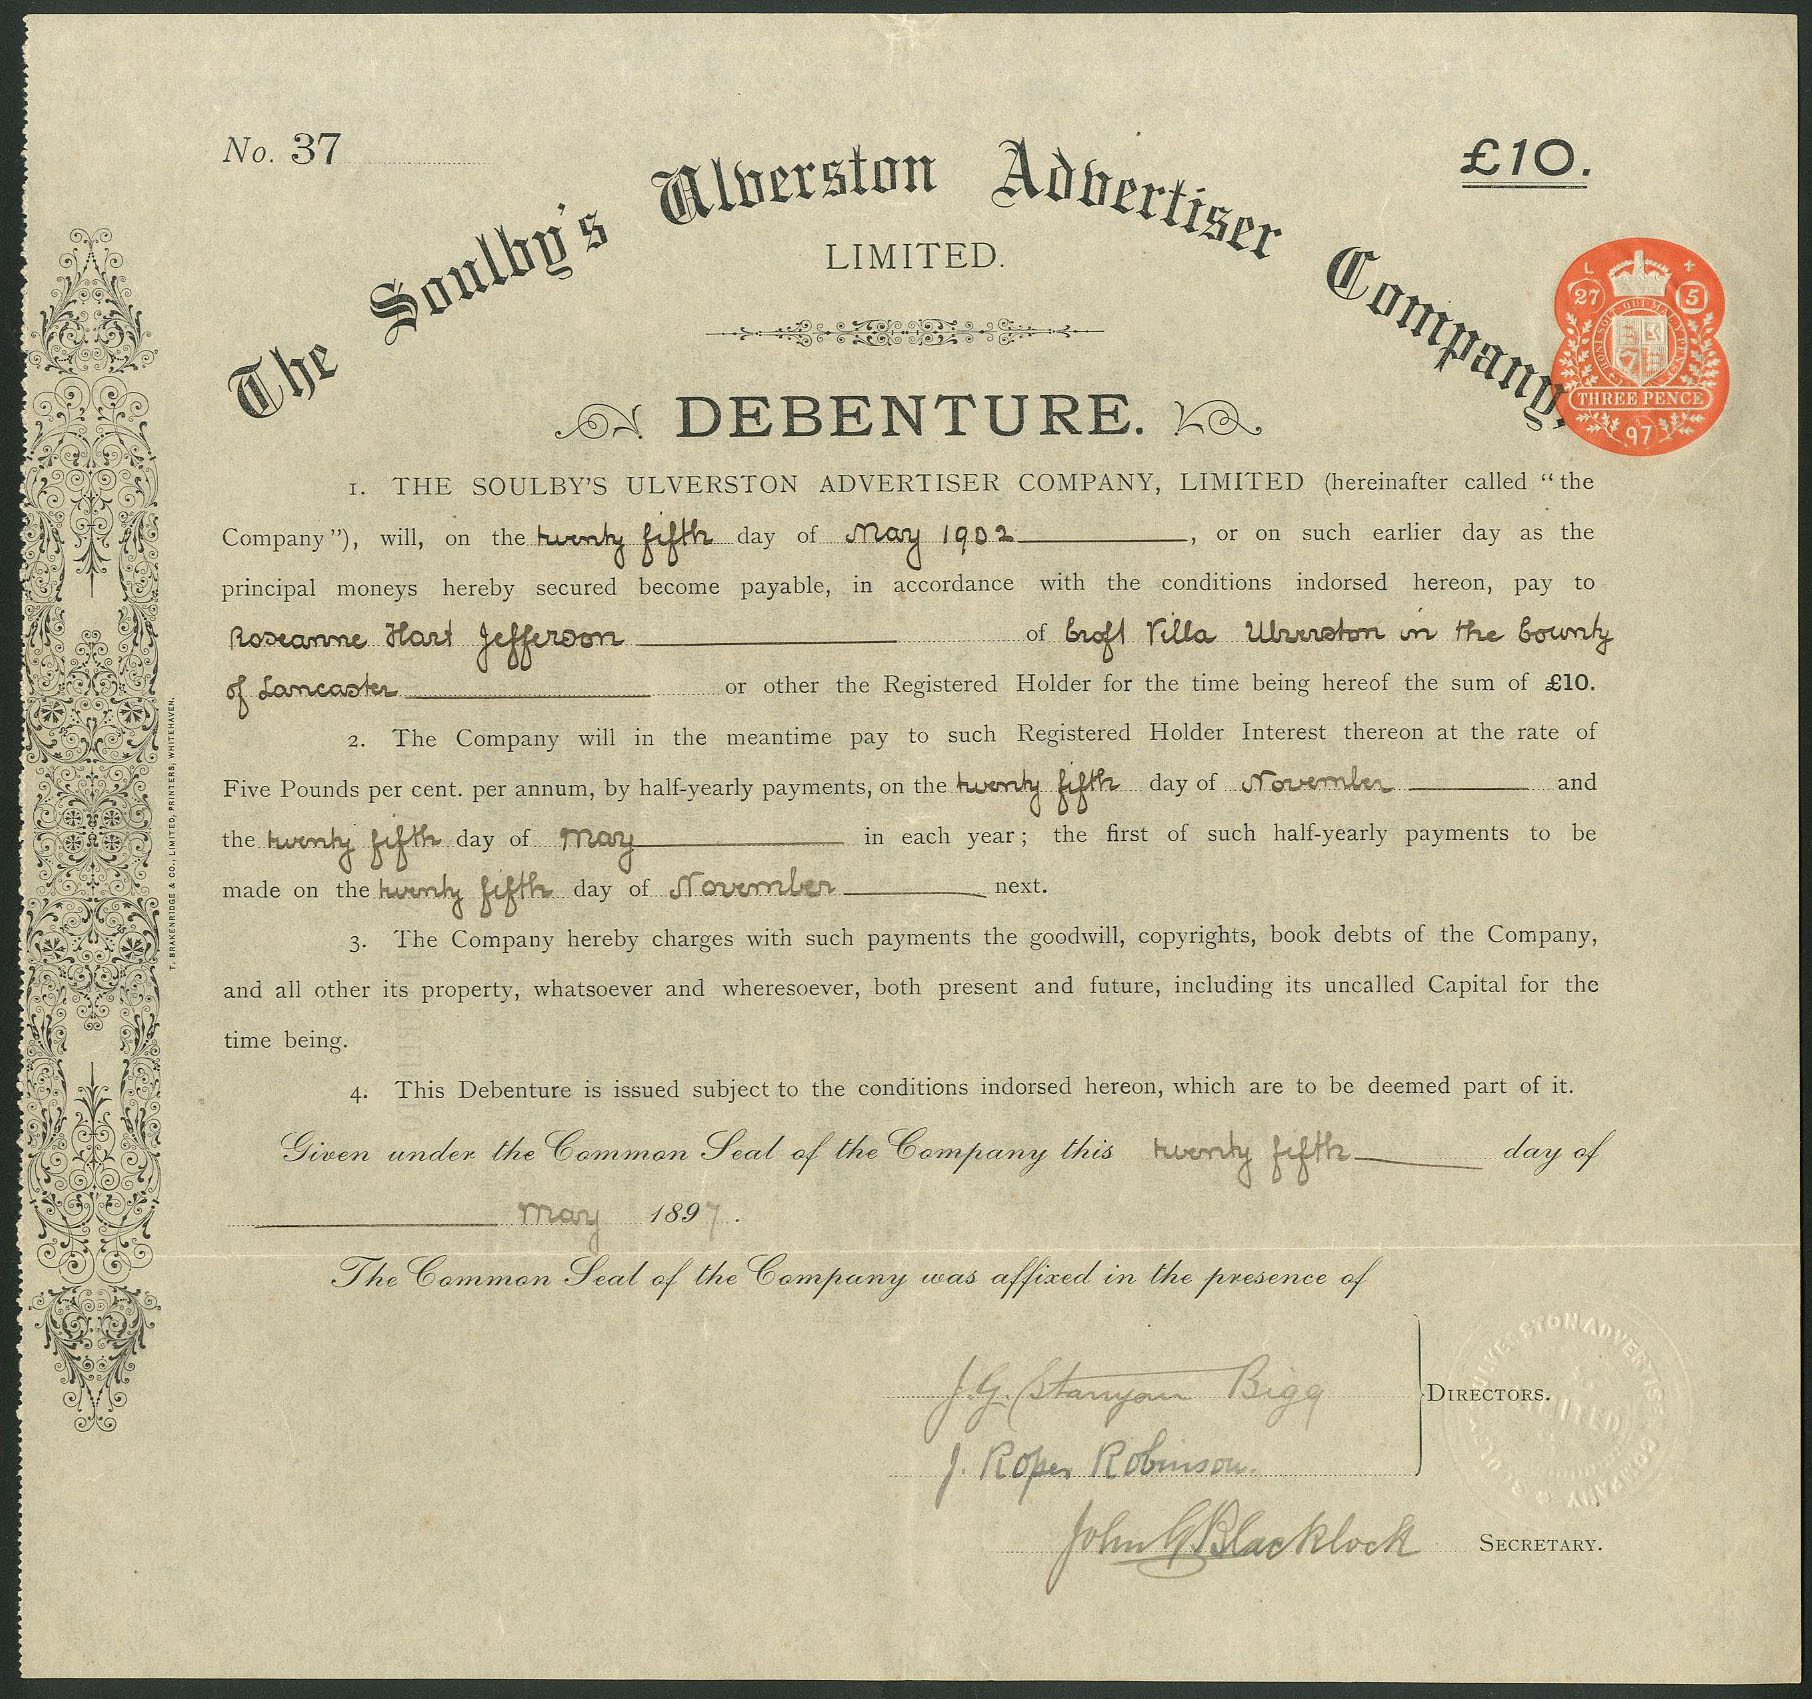 No. 37
£10.
The Soulby's Ulverston Advertiser Company,
LIMITED.
L +
27 5
HONI SOIT QUI MAL Y PENSE
THREE PENCE
97
DEBENTURE.
1. THE SOULBY'S ULVERSTON ADVERTISER COMPANY, LIMITED (hereinafter called "the
Company"), will, on the twenty fifth day of May 1902, or on such earlier day as the
principal moneys hereby secured become payable, in accordance with the conditions indorsed hereon, pay to
Roseanne Hart Jefferson of Croft Villa Ulverston in the County
of Lancaster or other the Registered Holder for the time being hereof the sum of £10.
2. The Company will in the meantime pay to such Registered Holder Interest thereon at the rate of
Five Pounds per cent. per annum, by half-yearly payments, on the twenty fifth day of November and
the twenty fifth day of May in each year; the first of such half-yearly payments to be
made on the twenty fifth day of November next.
3. The Company hereby charges with such payments the goodwill, copyrights, book debts of the Company,
and all other its property, whatsoever and wheresoever, both present and future, including its uncalled Capital for the
time being.
4. This Debenture is issued subject to the conditions indorsed hereon, which are to be deemed part of it.
Given under the Common Seal of the Company this twenty fifth day of
May 1897.
The Common Seal of the Company was affixed in the presence of
J. G. Stanyan Bigg
DIRECTORS.
J. Roper Robinson.
John G Blacklock SECRETARY.
SOULBY'S ULVERSTON ADVERTISER COMPANY
LIMITED
T. BRAKENRIDGE & CO., LIMITED, PRINTERS, WHITEHAVEN.